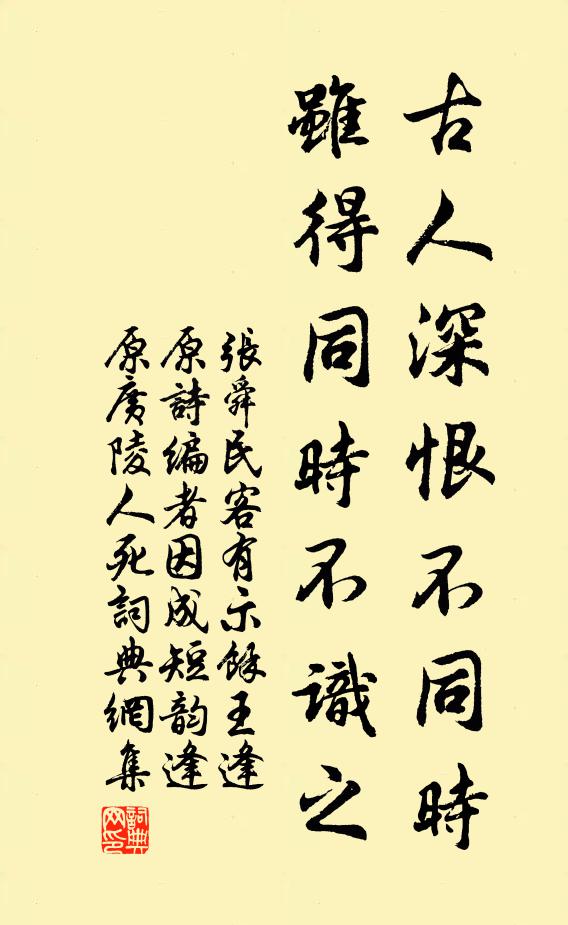 古人深恨不同時
雖得同時不識之
張舜民客有示餘王逢
原詩編者因成短韵逢
原廣陵人死詞典網集
詞典
网印